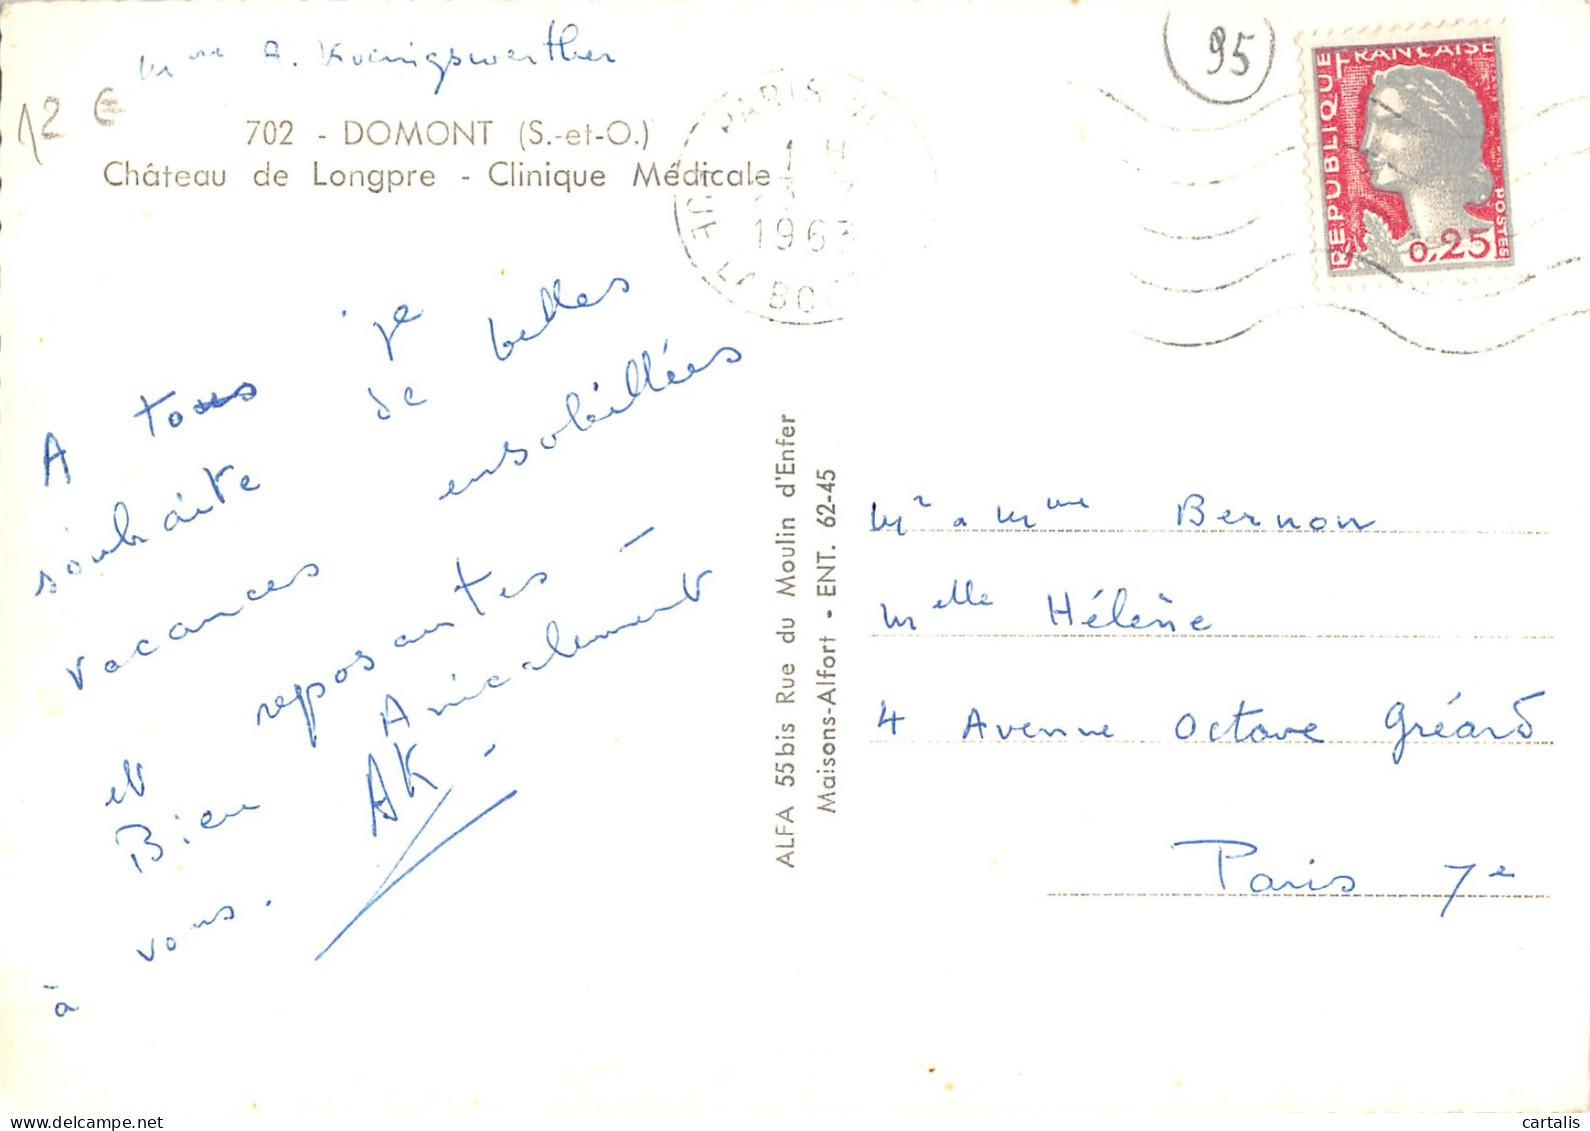 Mme A. Koenigswerther
12 €
702 - DOMONT (S.-et-O.)
Château de Longpre - Clinique Médicale
PARIS VII
1 H
1963
AV. LA BO
95
REPUBLIQUE FRANÇAISE
POSTES
0,25
A tous je
souhaite de belles
vacances ensoleillées
et reposantes -
Bien Amicalement
à vous. AK -
ALFA 55bis Rue du Moulin d'Enfer
Maisons-Alfort • ENT. 62-45
Mr & Mme Bernon
Melle Hélène
4 Avenue Octave Gréard
Paris 7e
cartalis